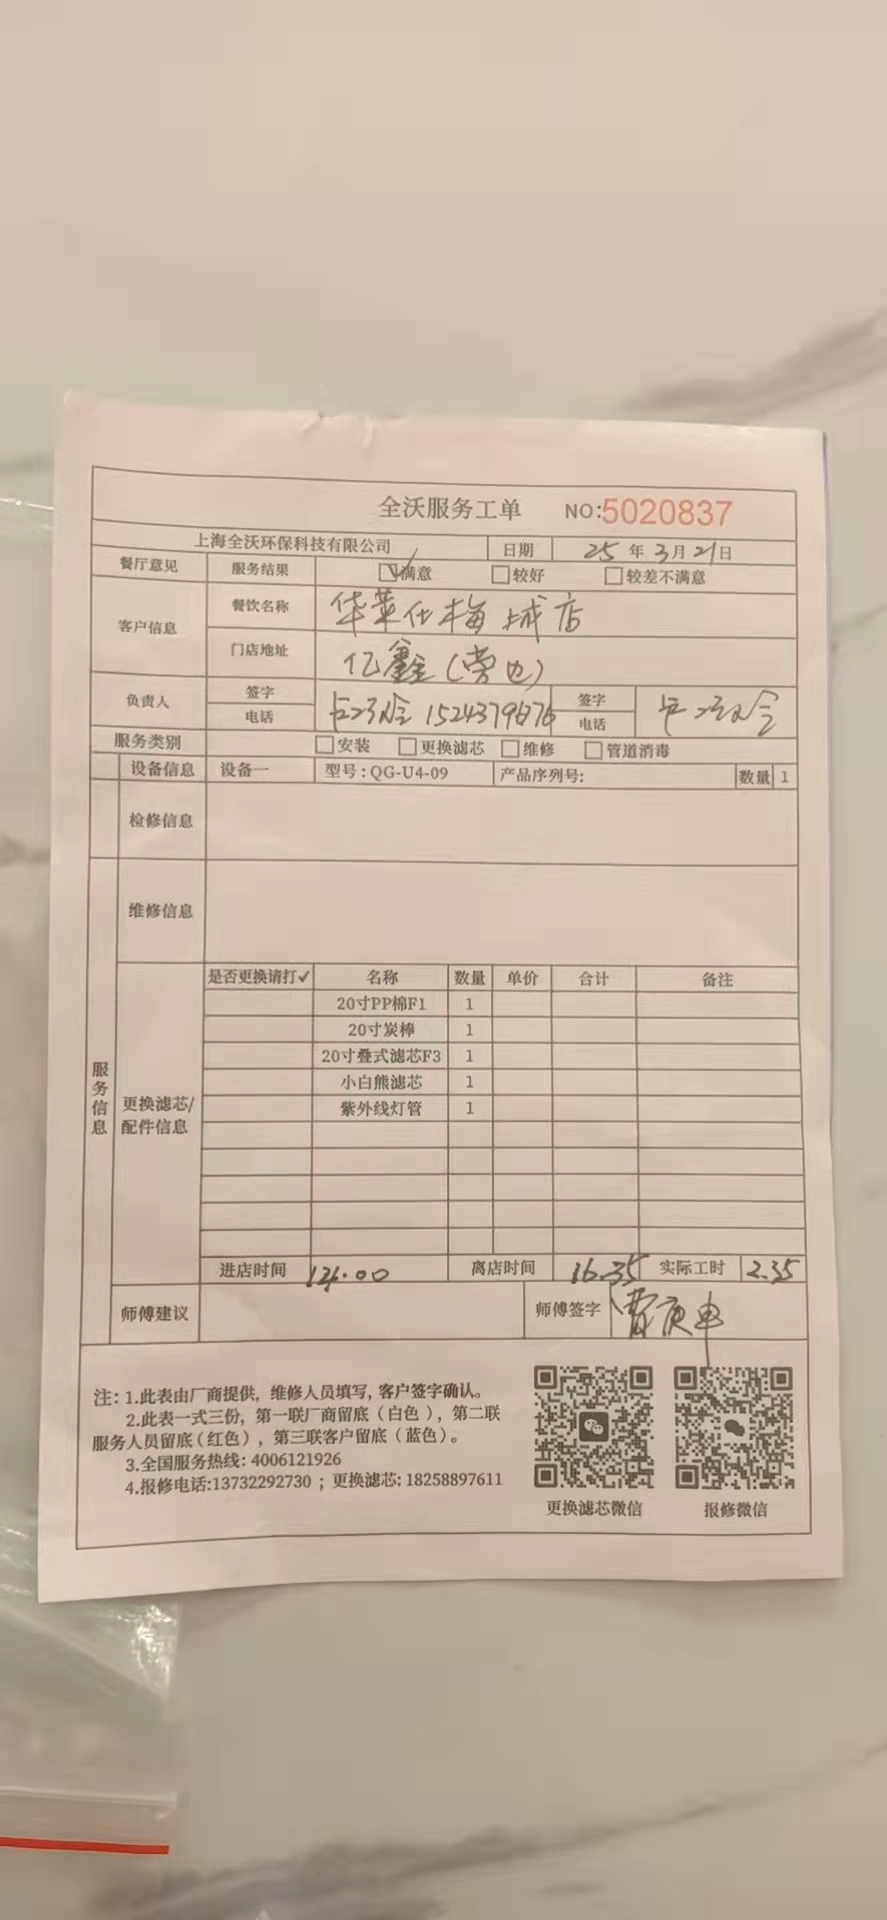 全沃服务工单 NO:5020837
上海全沃环保科技有限公司 日期 25年3月21日
餐厅意见 服务结果 满意 较好 较差不满意
客户信息 餐饮名称 华莱仕梅城店
门店地址 亿鑫(劳也)
负责人 签字 签字
电话 电话
服务类别 安装 更换滤芯 维修 管道消毒
设备信息 设备一 型号:QG-U4-09 产品序列号: 数量 1
检修信息
维修信息
服务信息
更换滤芯/配件信息
是否更换请打✓ 名称 数量 单价 合计 备注
20寸PP棉F1 1
20寸炭棒 1
20寸叠式滤芯F3 1
小白熊滤芯 1
紫外线灯管 1
进店时间 离店时间 16.35 实际工时 2.35
师傅建议 师傅签字
注:1.此表由厂商提供,维修人员填写,客户签字确认。
2.此表一式三份,第一联厂商留底(白色),第二联
服务人员留底(红色),第三联客户留底(蓝色)。
3.全国服务热线:4006121926
4.报修电话:13732292730;更换滤芯:18258897611
更换滤芯微信 报修微信